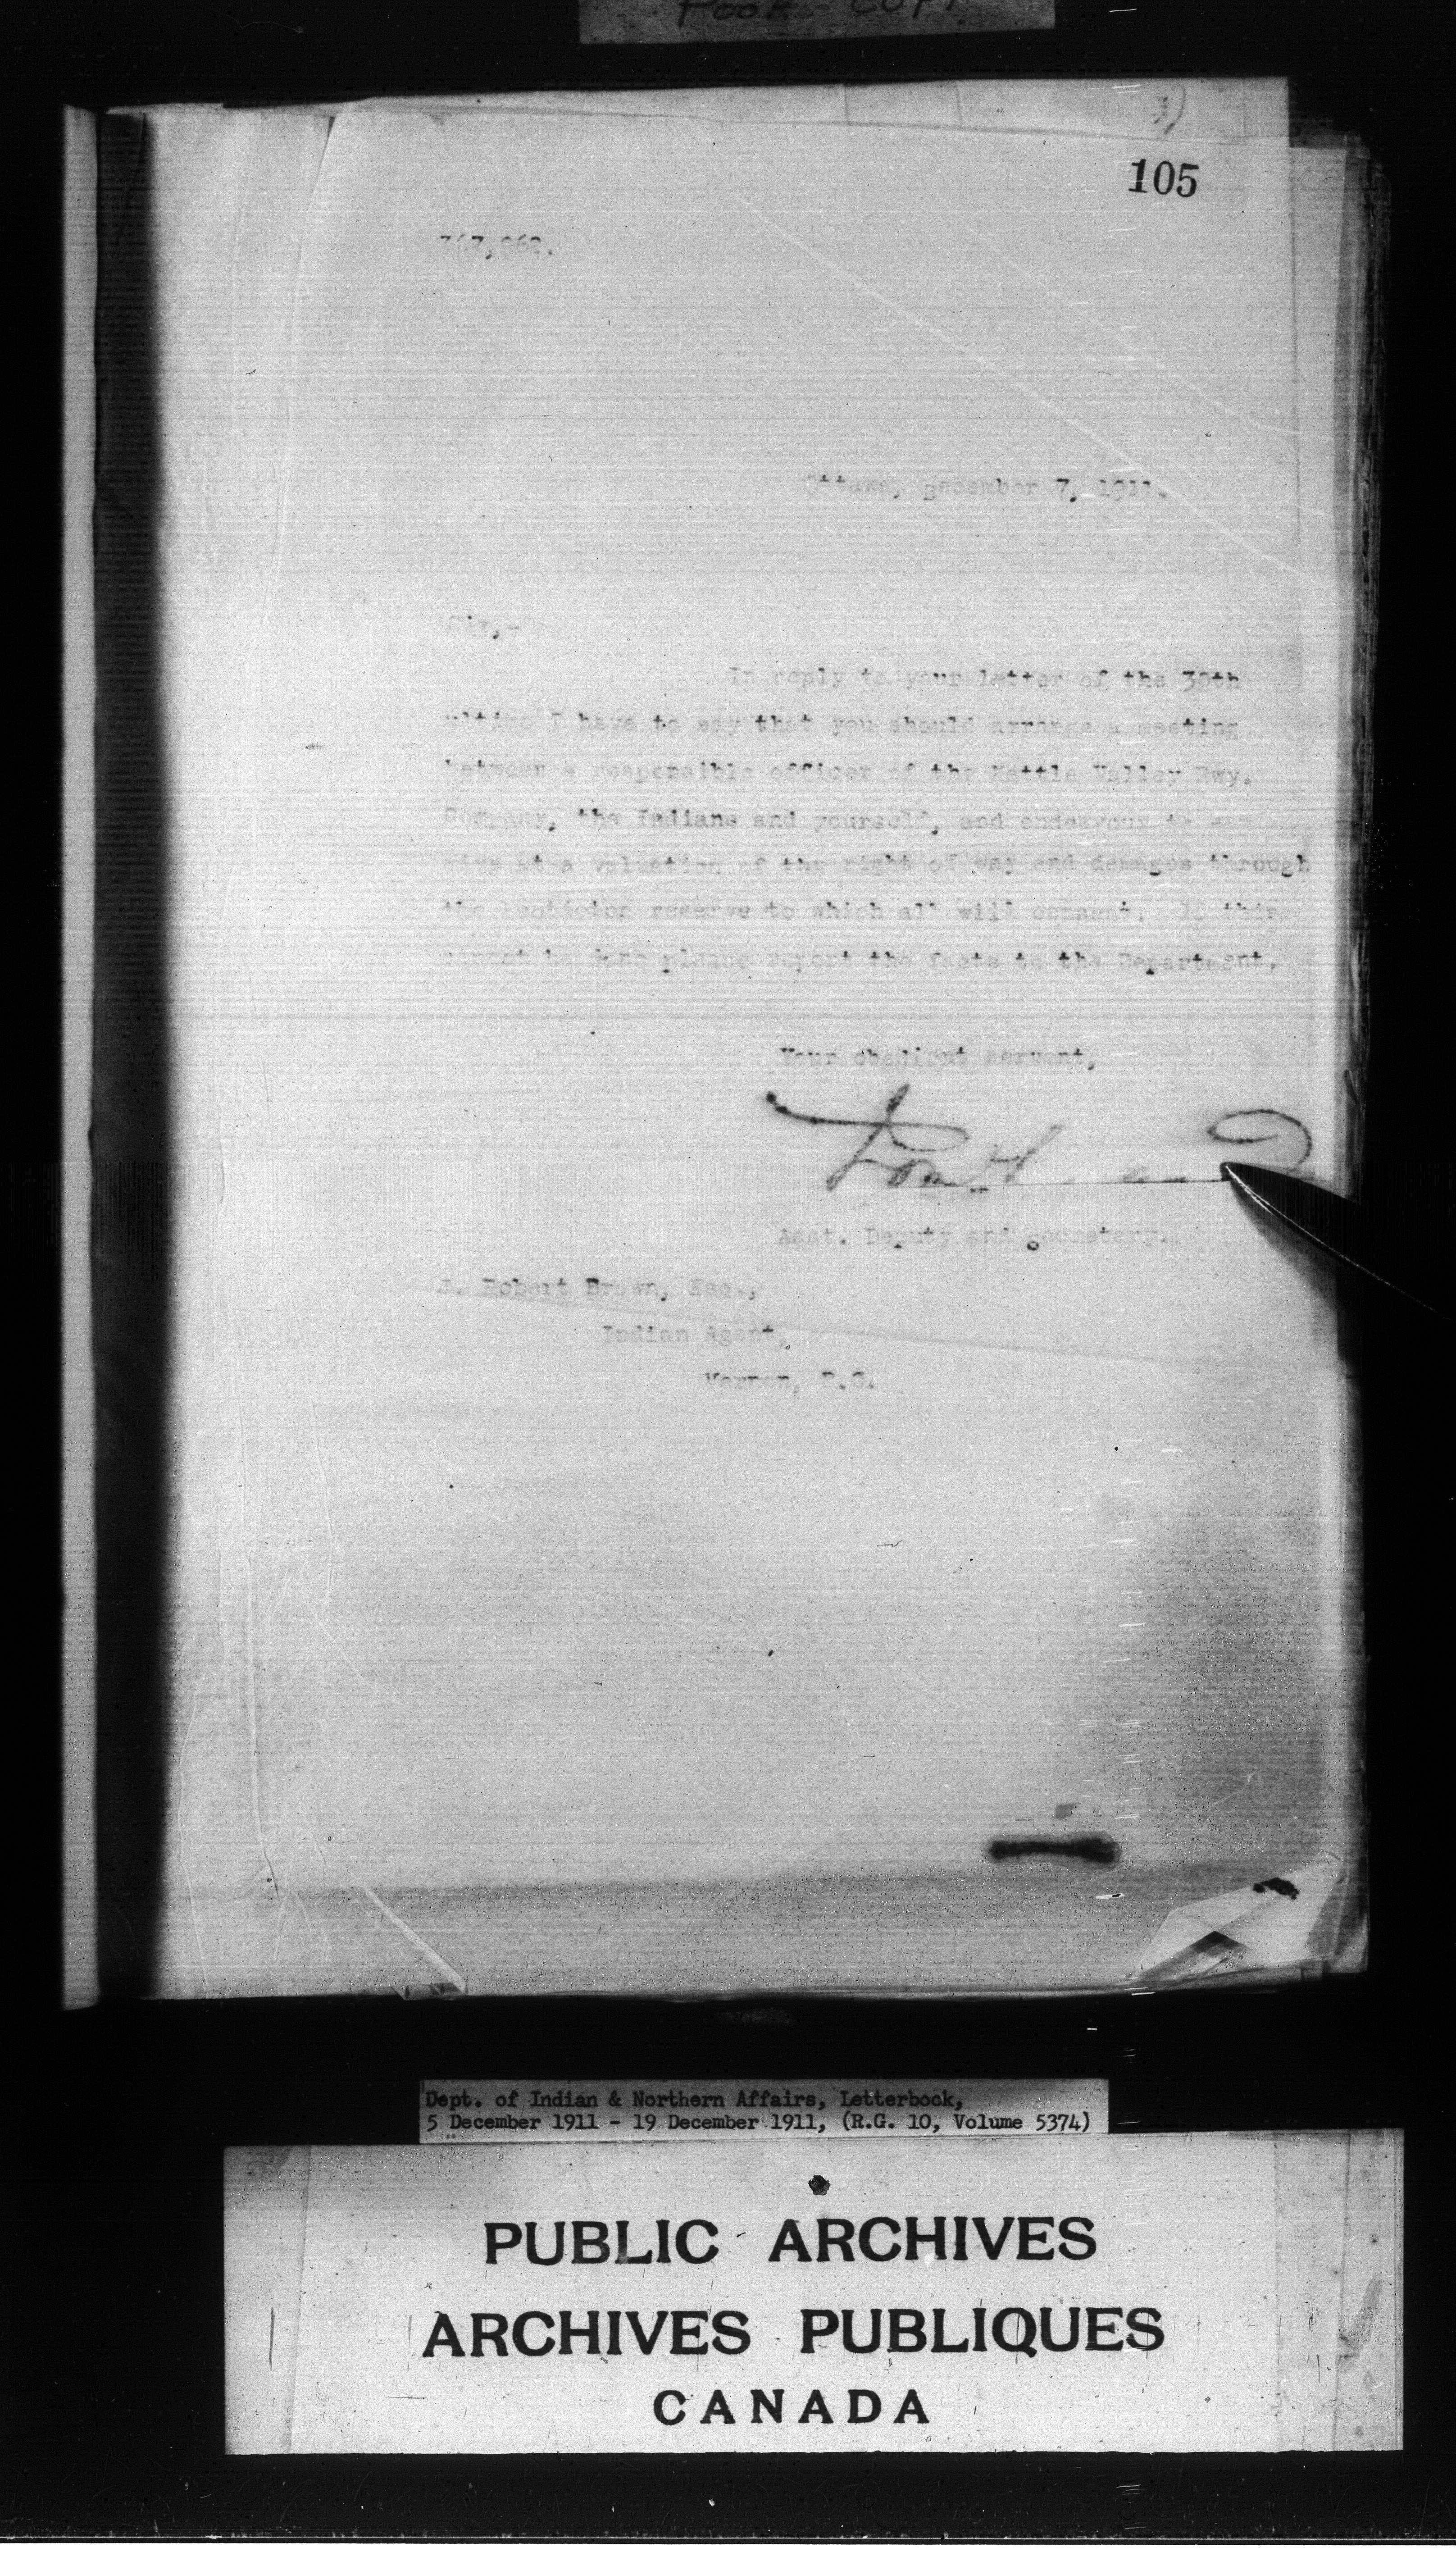 POOR COPY
105
Ottawa, December 7, 1911.
Sir,-
In reply to your letter of the 30th
ultimo I have to say that you should arrange a meeting
between a responsible officer of the Kettle Valley Rwy.
Company, the Indians and yourself, and endeavour to ar-
rive at a valuation of the right of way and damages through
the Penticton reserve to which all will consent. If this
cannot be done please report the facts to the Department.
Your obedient servant,
Asst. Deputy and Secretary.
J. Robert Brown, Esq.,
Indian Agent,
Vernon, B.C.
Dept. of Indian & Northern Affairs, Letterbook,
5 December 1911 - 19 December 1911, (R.G. 10, Volume 5374)
PUBLIC ARCHIVES
ARCHIVES PUBLIQUES
CANADA